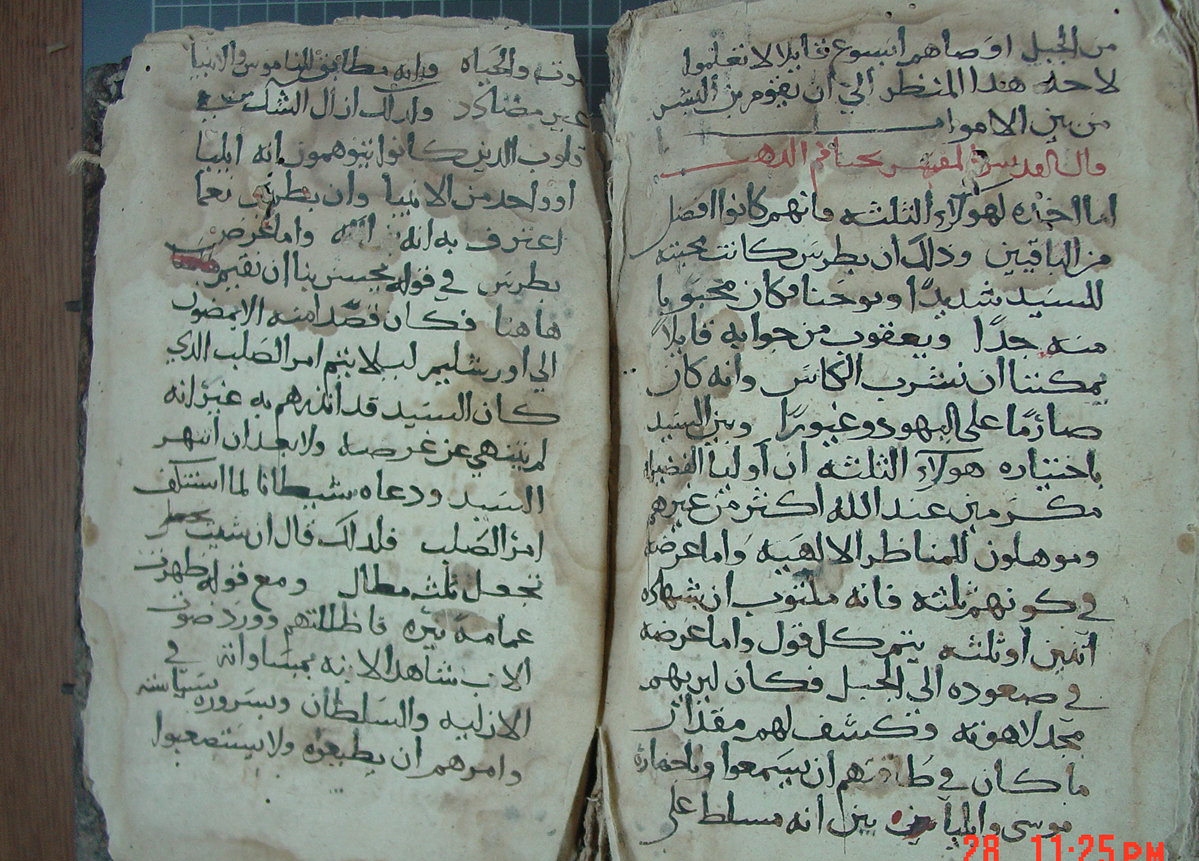 من الجبل اوصاهم ايسوع قايلا لا تعلموا
لاحد هذا المنظر الي ان يقوم بن البشر
من بين الاموات
قال القديس المفسر يحنا فم الذهب
اما اخذه لهولاء الثلثه فانهم كانوا افضل
من الباقين وذلك ان بطرس كانت محبته
للسيد شديدًا ويوحنا فكان محبوبا
منه جدًا ويعقوب من جوابه قايلاً
يمكننا ان نشرب الكاس وانه كان
صارمًا على اليهود وغيورًا وبين السيد
باختياره هولاء الثلثه ان اوليا الفضيله
مكرمين عند الله اكثر من غيرهم
وموهلون للمناظر الالهيه واما غرضه
في كونهم ثلثه فانه مكتوب ان شهادة
اثنين او ثلثه يتم كل قول واما غرضه
في صعوده الي الجبل فكان ليريهم
مجد لاهوته وكشف لهم مقدار
ما كان في طاقتهم ان يسمعوا وباحضاره
موسى وايليا بين انه مسلط على
موت والحياه وانه مطابق للناموس والانبيا
غير مضادد ولذلك ازال الشك من
قلوب الذين كانوا يتوهمون انه ايليا
او واحد من الانبيا وان بطرس نعما
اعترف به انه الله واما غرض
بطرس في قوله يحسن بنا ان نقيم
هاهنا فكان قصدًا منه الا يمضوا
الي اورشليم ليلا يتم امر الصلب الذي
كان السيد قد انذرهم به غير انه
لم ينتهي عن غرضه ولا بعد ان انتهر
السيد ودعاه شيطانا لما استنكف
امر الصلب فلذلك قال ان شيت
نجعل ثلث مطال ومع قوله ظهرت
عمامه نيره فاظللتهم وورد صوت
الاب شاهدا لابنه بمساواته في
الازليه والسلطان وبسروره
وامرهم ان يطيعوه ولا يستصعبوا
28 11:25 PM